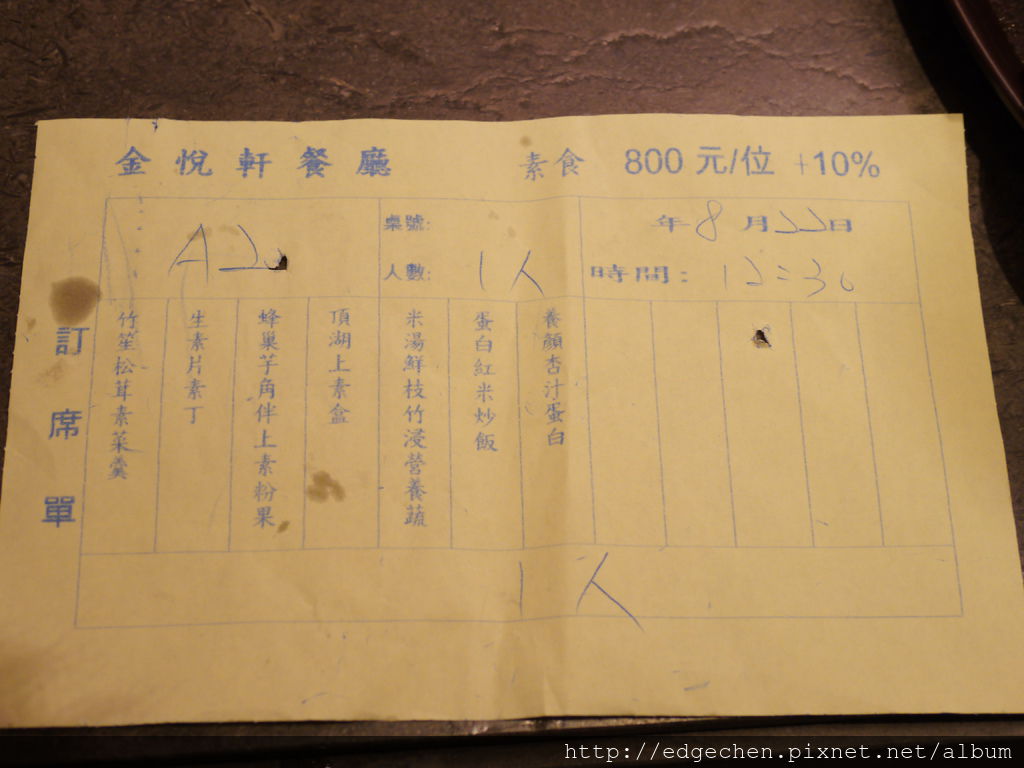 金悅軒餐廳 素食 800元/位 +10%
A20
桌號:
人數: 1人
年8月22日
時間: 12:30
訂席單
竹笙松茸素菜羹
生素片素丁
蜂巢芋角伴上素粉果
頂湖上素盒
米湯鮮枝竹浸營養蔬
蛋白紅米炒飯
養顏杏汁蛋白
1人
http://edgechen.pixnet.net/album